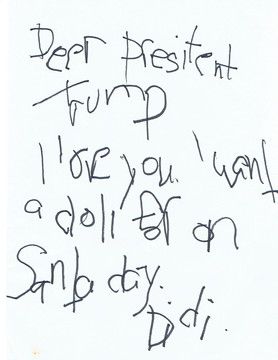 Deer presitent
trump
I love you. I want
a doll for on
Santa day.
Didi.